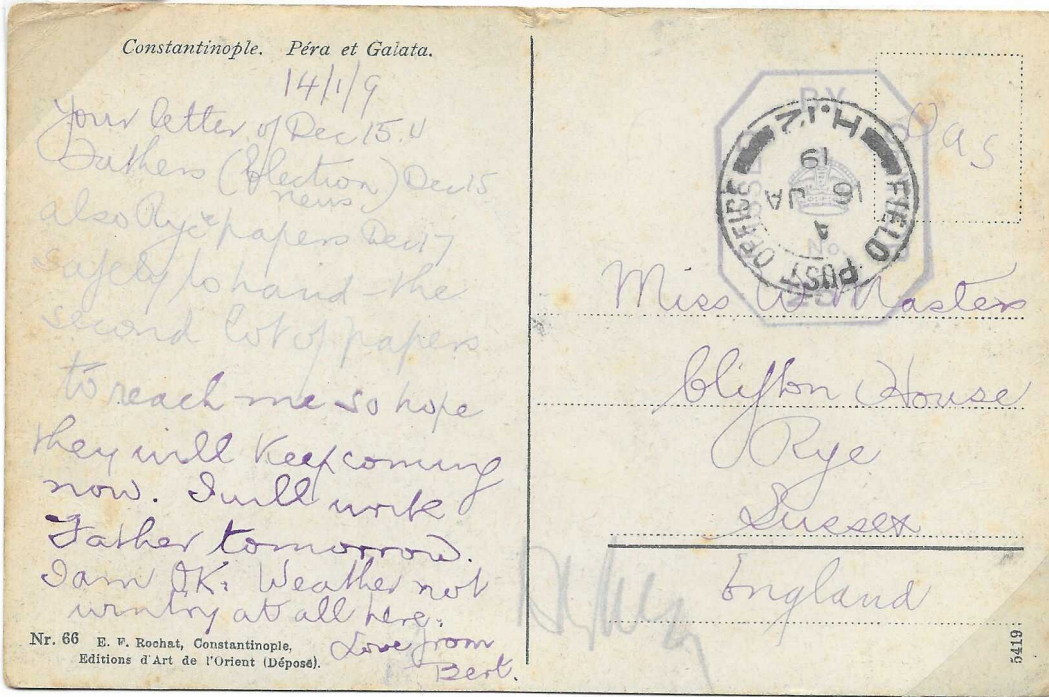 Constantinople. Péra et Galata.
14/1/9
Your letter of Dec 15. &
Fathers (Election) Dec 15
news
also Rye papers Dec 17
safely to hand - the
second lot of papers
to reach me so hope
they will keep coming
now. I will write
Father tomorrow.
I am OK: Weather not
wintry at all here.
Love from
Bert.
Nr. 66 E. F. Rochat, Constantinople,
Editions d'Art de l'Orient (Déposé).
OAS
BY
No
FIELD POST OFFICE
H.I.Z
16 JA
19
Miss W. Masters
Clifton House
Rye
Sussex
England
5419